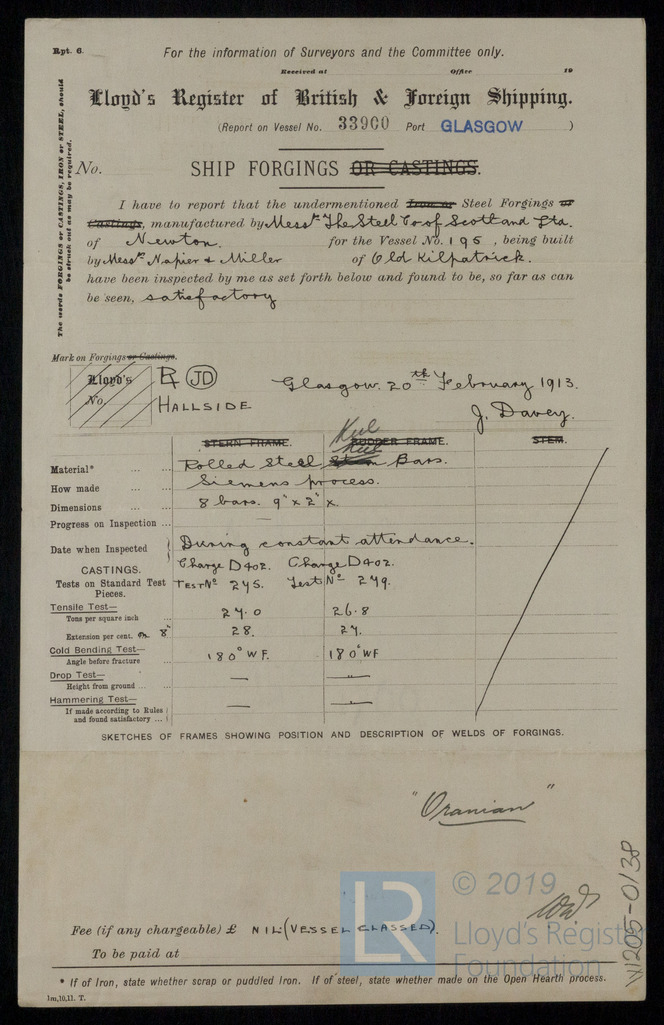 Rpt. 6.
For the information of Surveyors and the Committee only.
Received at Office 19
Lloyd's Register of British & Foreign Shipping.
(Report on Vessel No. 33900 Port GLASGOW )
The words FORGINGS or CASTINGS, IRON or STEEL, should
be struck out as may be required.
No. SHIP FORGINGS OR CASTINGS.
I have to report that the undermentioned Iron or Steel Forgings or
Castings, manufactured by Messrs The Steel Co of Scotland Ltd.
of Newton. for the Vessel No. 195 , being built
by Messrs Napier & Miller of Old Kilpatrick.
have been inspected by me as set forth below and found to be, so far as can
be seen, satisfactory
Mark on Forgings or Castings.
Lloyd's
No.
JD
HALLSIDE
Glasgow. 20th February 1913.
J. Davey.
Keel
STERN FRAME. RUDDER FRAME. STEM.
Keel
Material* Rolled Steel Stem Bars.
How made Siemens process.
Dimensions 8 bars. 9" x 2" x.
Progress on Inspection ...
Date when Inspected During constant attendance.
CASTINGS. Charge D402. Charge D402.
Tests on Standard Test Pieces. TEST No 245. Test No 249.
Tensile Test—
Tons per square inch 27.0 26.8
Extension per cent. on 8" 28. 27.
Cold Bending Test—
Angle before fracture 180° WF. 180° WF
Drop Test—
Height from ground ... — —
Hammering Test—
If made according to Rules
and found satisfactory ... — —
SKETCHES OF FRAMES SHOWING POSITION AND DESCRIPTION OF WELDS OF FORGINGS.
"Oranian"
Fee (if any chargeable) £ NIL (VESSEL CLASSED).
To be paid at
* If of Iron, state whether scrap or puddled Iron. If of steel, state whether made on the Open Hearth process.
1m,10,11. T.
W1205-0138
LR
© 2019
Lloyd's Register
Foundation